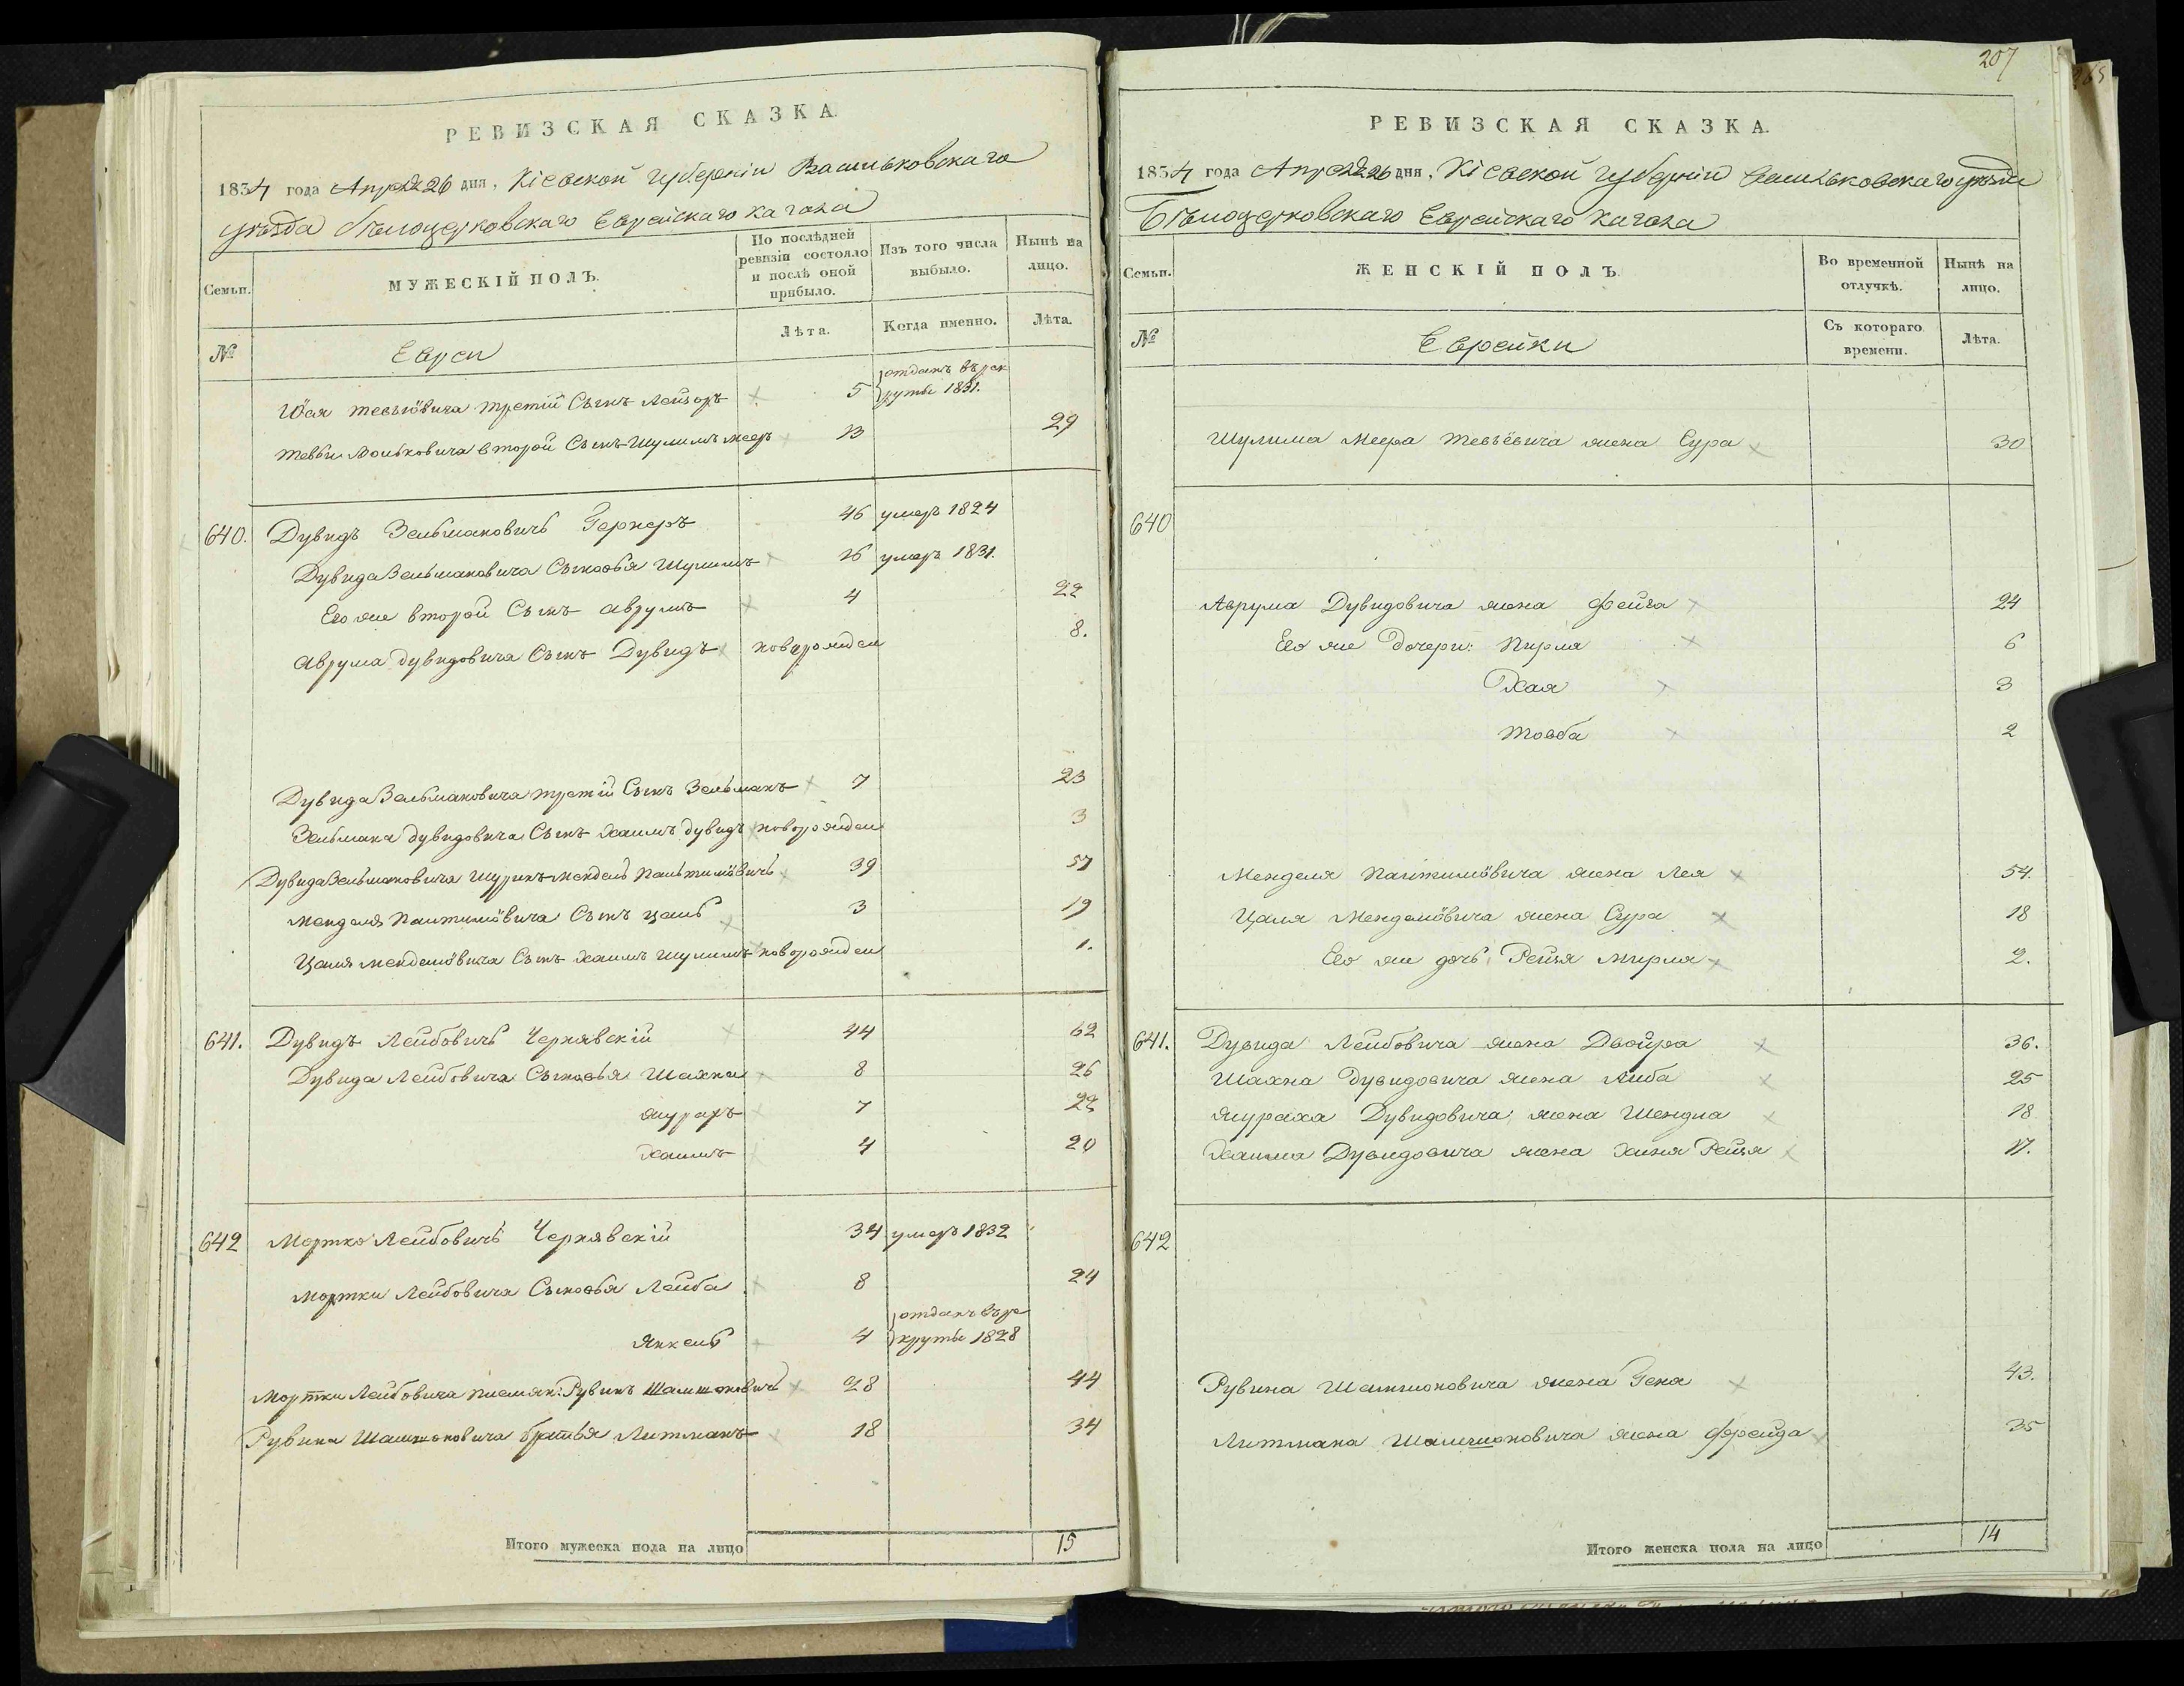 РЕВИЗСКАЯ СКАЗКА.
1834 года Апреля 26 дня, Кіевской губерніи Васильковскаго
уѣзда Бѣлоцерковскаго Еврейскаго кагала
Семьи.
МУЖЕСКІЙ ПОЛЪ.
По послѣдней
ревизіи состояло
и послѣ оной
прибыло.
Изъ того числа
выбыло.
Нынѣ на
лицо.
№
Евреи
Лѣта.
Когда именно.
Лѣта.
Іося Тевьёвича третій Сынъ Лейзоръ 5 отданъ въ рек
руты 1831.
Тевьи Мошковича второй Сынъ Шулимъ Мееръ 13 29
640. Дувидъ Зельмановичъ Гернеръ 46 умеръ 1824
Дувида Зельмановича Сыновья Шулимъ 16 умеръ 1831.
Его же второй Сынъ Аврумъ 4 22
Аврума Дувидовича Сынъ Дувидъ новорожден 8.
Дувида Зельмановича третій Сынъ Зельманъ 7 23
Зельмана Дувидовича Сынъ Хаимъ Дувидъ новорожден 3
Дувида Зельмановича Шуринъ Мендель 39 57
Менделя Сынъ Цаль 3 19
Цаля Менделёвича Сынъ Хаимъ Шулимъ новорожден 1.
641. Дувидъ Лейбовичъ Чернявскій 44 62
Дувида Лейбовича Сыновья Шахна 8 26
Журахъ 7 22
Хаимъ 4 20
642 Мортко Лейбовичъ Чернявскій 34 умеръ 1832
Мортки Лейбовича Сыновья Лейба 8 24
Янкель 4 отданъ въ ре
круты 1828
Мортки Лейбовича племян: Рувинъ Шамшоновичъ 28 44
Рувина Шамшоновича братья Литманъ 18 34
Итого мужеска пола на лицо 15
207
РЕВИЗСКАЯ СКАЗКА.
1834 года Апреля 26 дня, Кіевской губерніи Васильковскаго уѣзда
Бѣлоцерковскаго Еврейскаго кагала
Семьи.
ЖЕНСКІЙ ПОЛЪ.
Во временной
отлучкѣ.
Нынѣ на
лицо.
№
Еврейки
Съ котораго
времени.
Лѣта.
Шулима Меера Тевьёвича жена Сура 30
640
Аврума Дувидовича жена Фейга 24
Его же дочери: Пирля 6
Хая 3
Товба 2
Менделя жена Лея 54.
Цаля Менделёвича жена Сура 18
Его же дочь Рейзя Мирля 2.
641. Дувида Лейбовича жена Двойра 36.
Шахна Дувидовича жена Либа 25
Жураха Дувидовича жена Шендла 18
Хаима Дувидовича жена Хиня Рейзя 17.
642
Рувина Шамшоновича жена Геня 43.
Литмана Шамшоновича жена Фрейда 35
Итого женска пола на лицо 14